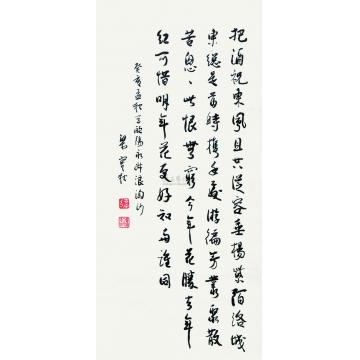 把酒祝東風且共從容垂楊紫陌洛城
東總是當時攜手處游遍芳叢聚散
苦怱怱此恨無窮今年花勝去年
紅可惜明年花更好知與誰同
癸亥孟秋寫歐陽永叔浪淘沙
梁實秋